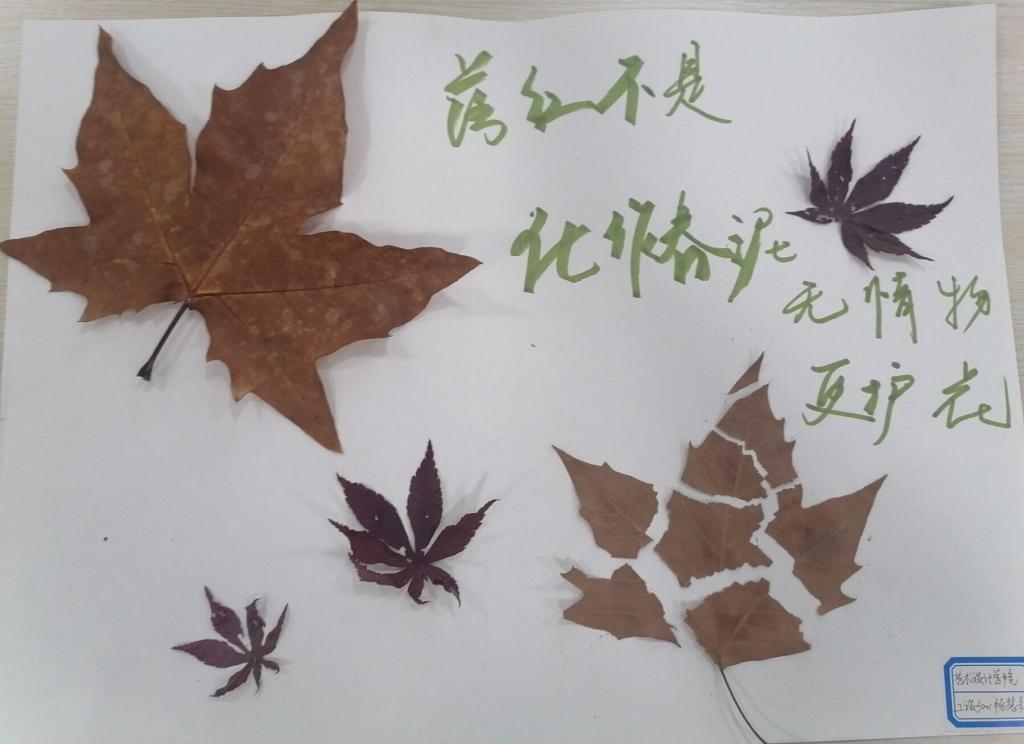 落红不是
化作春泥
无情物
更护花
艺术设计学院
工设